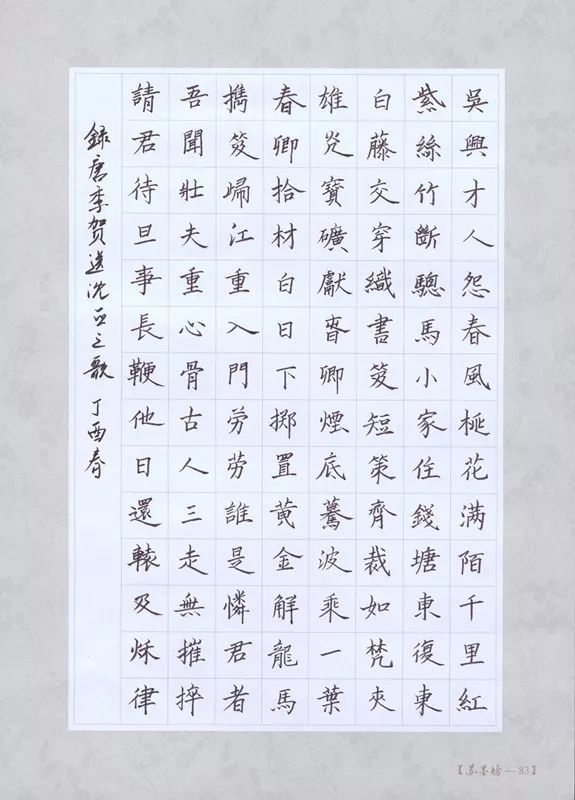 吳興才人怨春風桃花满陌千里紅
紫絲竹斷驄馬小家住錢塘東復東
白藤交穿織書笈短策齊裁如梵夾
雄光寶礦獻春卿煙底驀波乘一葉
春卿拾材白日下掷置黄金解龍馬
擕笈歸江重入門劳劳誰是憐君者
吾聞壯夫重心骨古人三走無摧捽
請君待旦事長鞭他日還轅及秋律
録唐李贺送沈亞之歌 丁酉春
【苏墨坊—83】